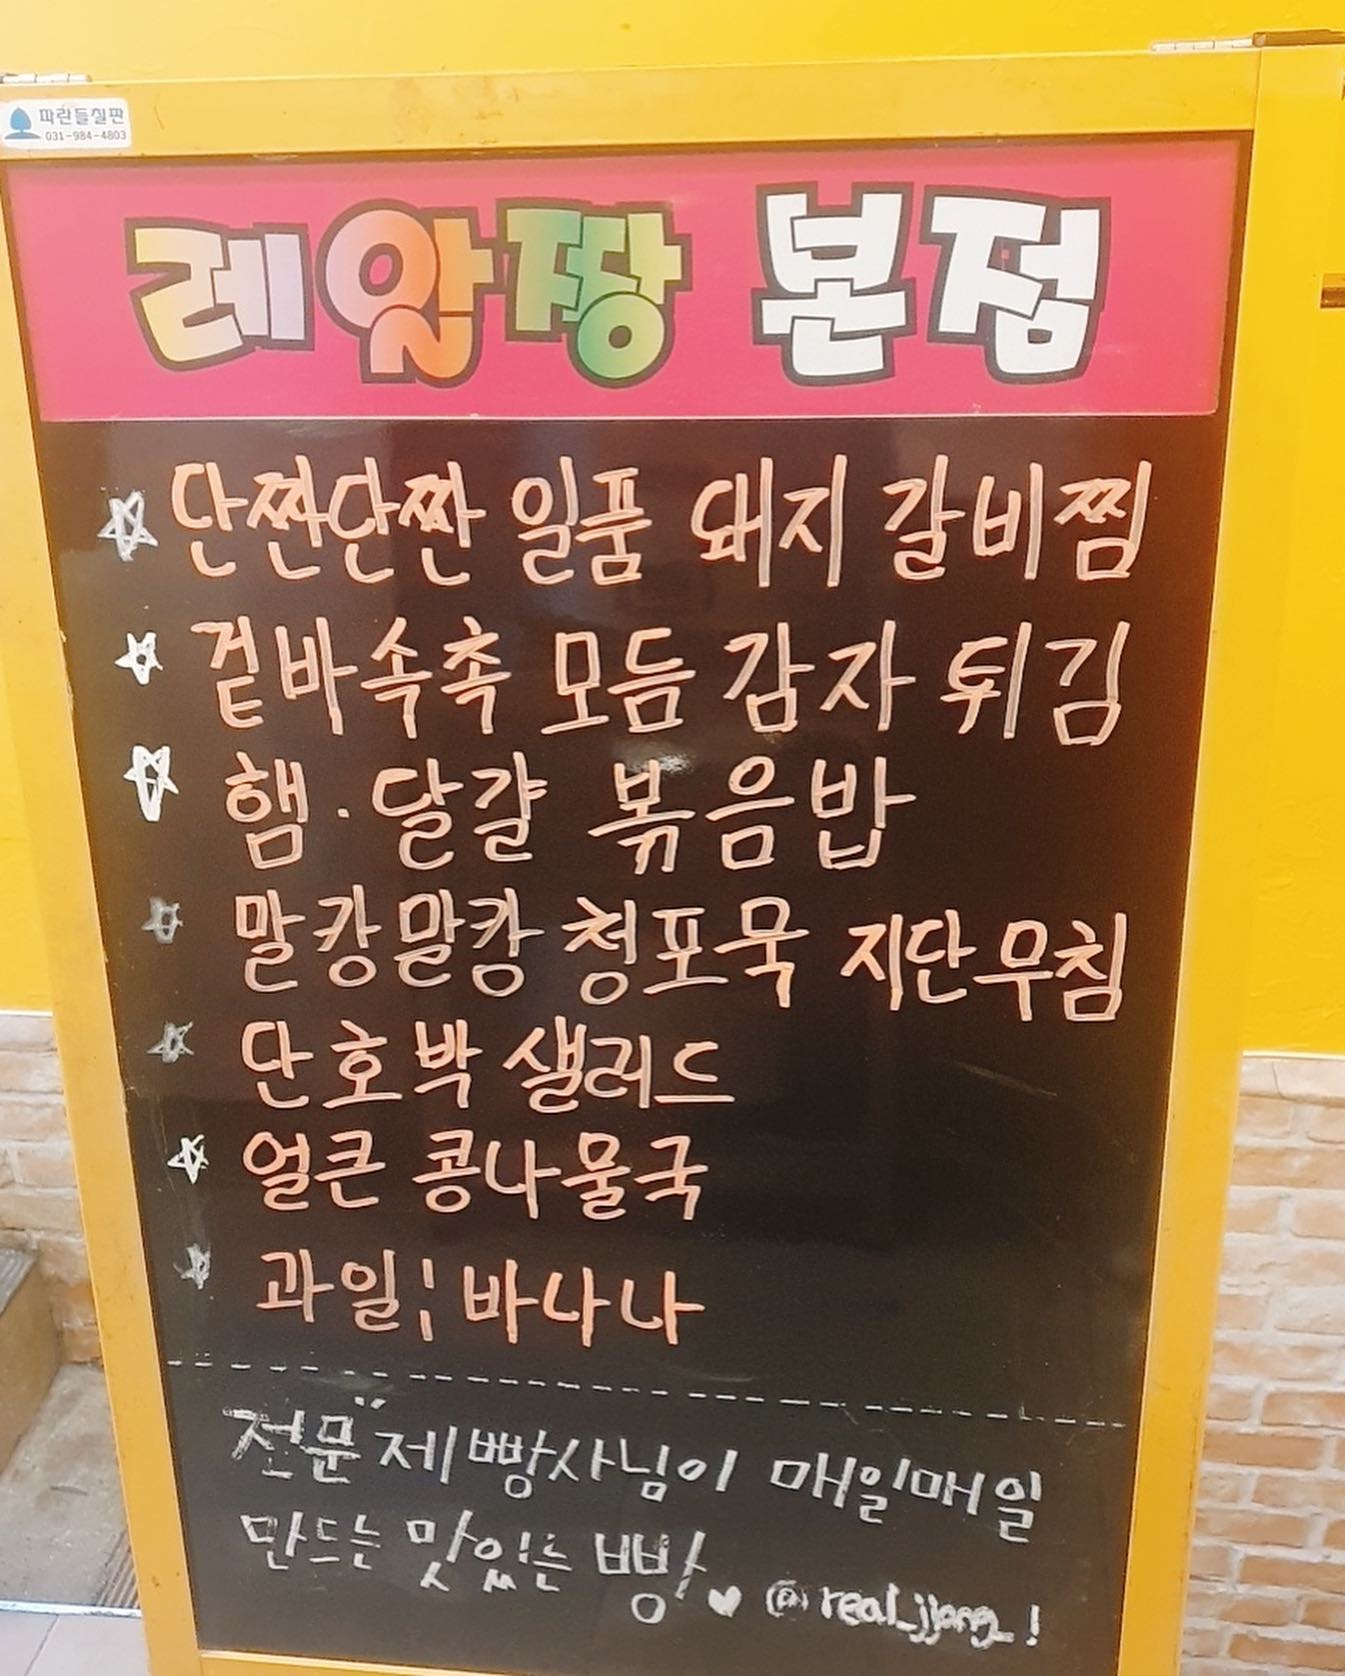 파란들칠판
031-984-4803
레알짱 본점
단짠단짠 일품 돼지 갈비찜
겉바속촉 모듬 감자 튀김
햄·달걀 볶음밥
말캉말캉 청포묵 지단무침
단호박 샐러드
얼큰 콩나물국
과일 : 바나나
전문"제빵사님이 매일매일
만드는 맛있는 빵♥ @real_jjang_!